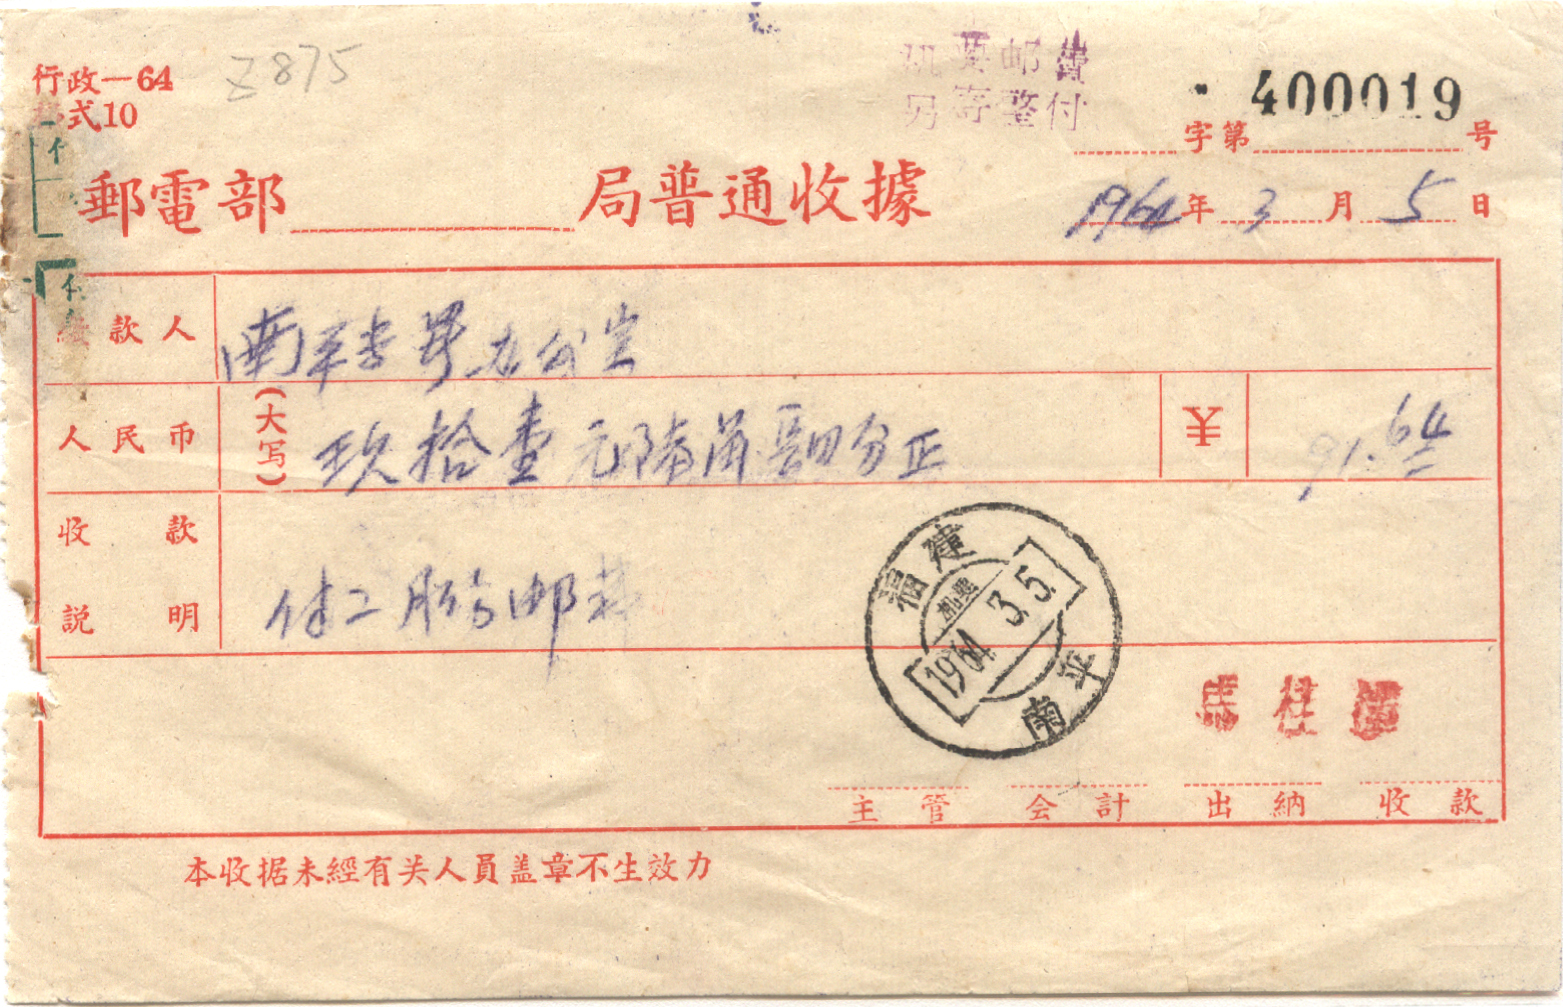 Z875
行政一64
式10
机要邮费
另寄整付
400019
字第 号
郵電部 局普通收據
1964年3月5日
繳款人 南平专署办公室
人民币 (大写) 玖拾壹元陆角 四分正 ¥ 91.64
收款説明 付二月 邮
福建
机要
1964.3.5.
南平
主管 会計 出納 收款
本收据未經有关人員盖章不生效力